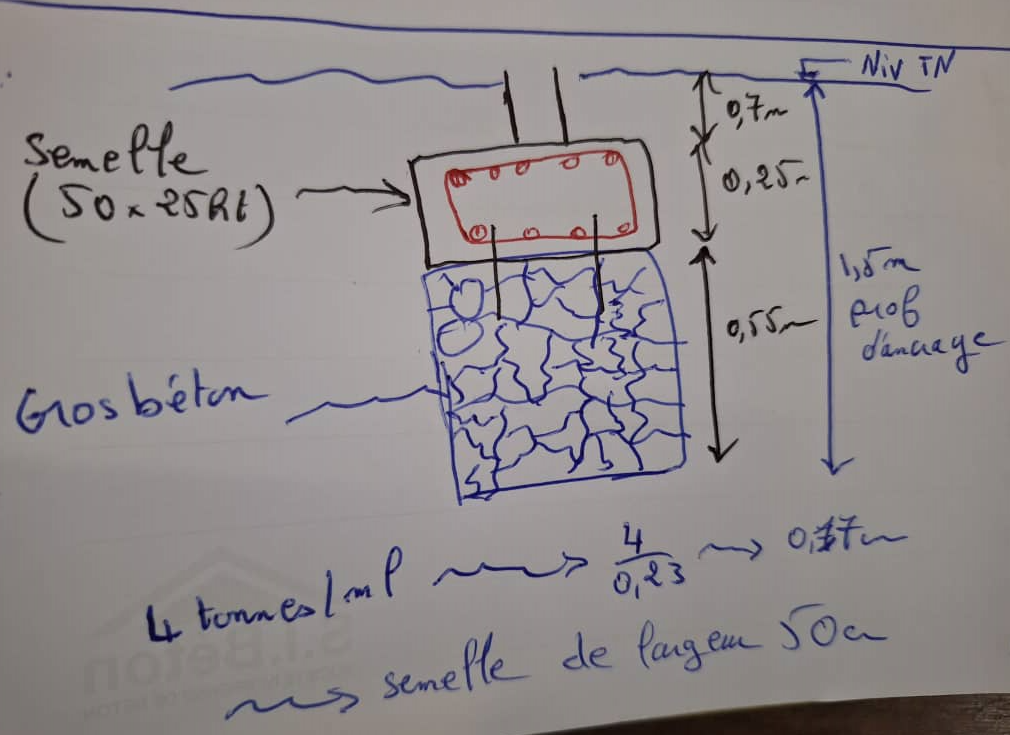 Niv TN
0,7m
Semelle
(50 x 25ht)
0,25m
1,5m
prof
d'ancrage
0,55m
Gros béton
4 tonnes/ml → 4/0,23 → 0,17m
→ semelle de largeur 50cm
S.I.Béton